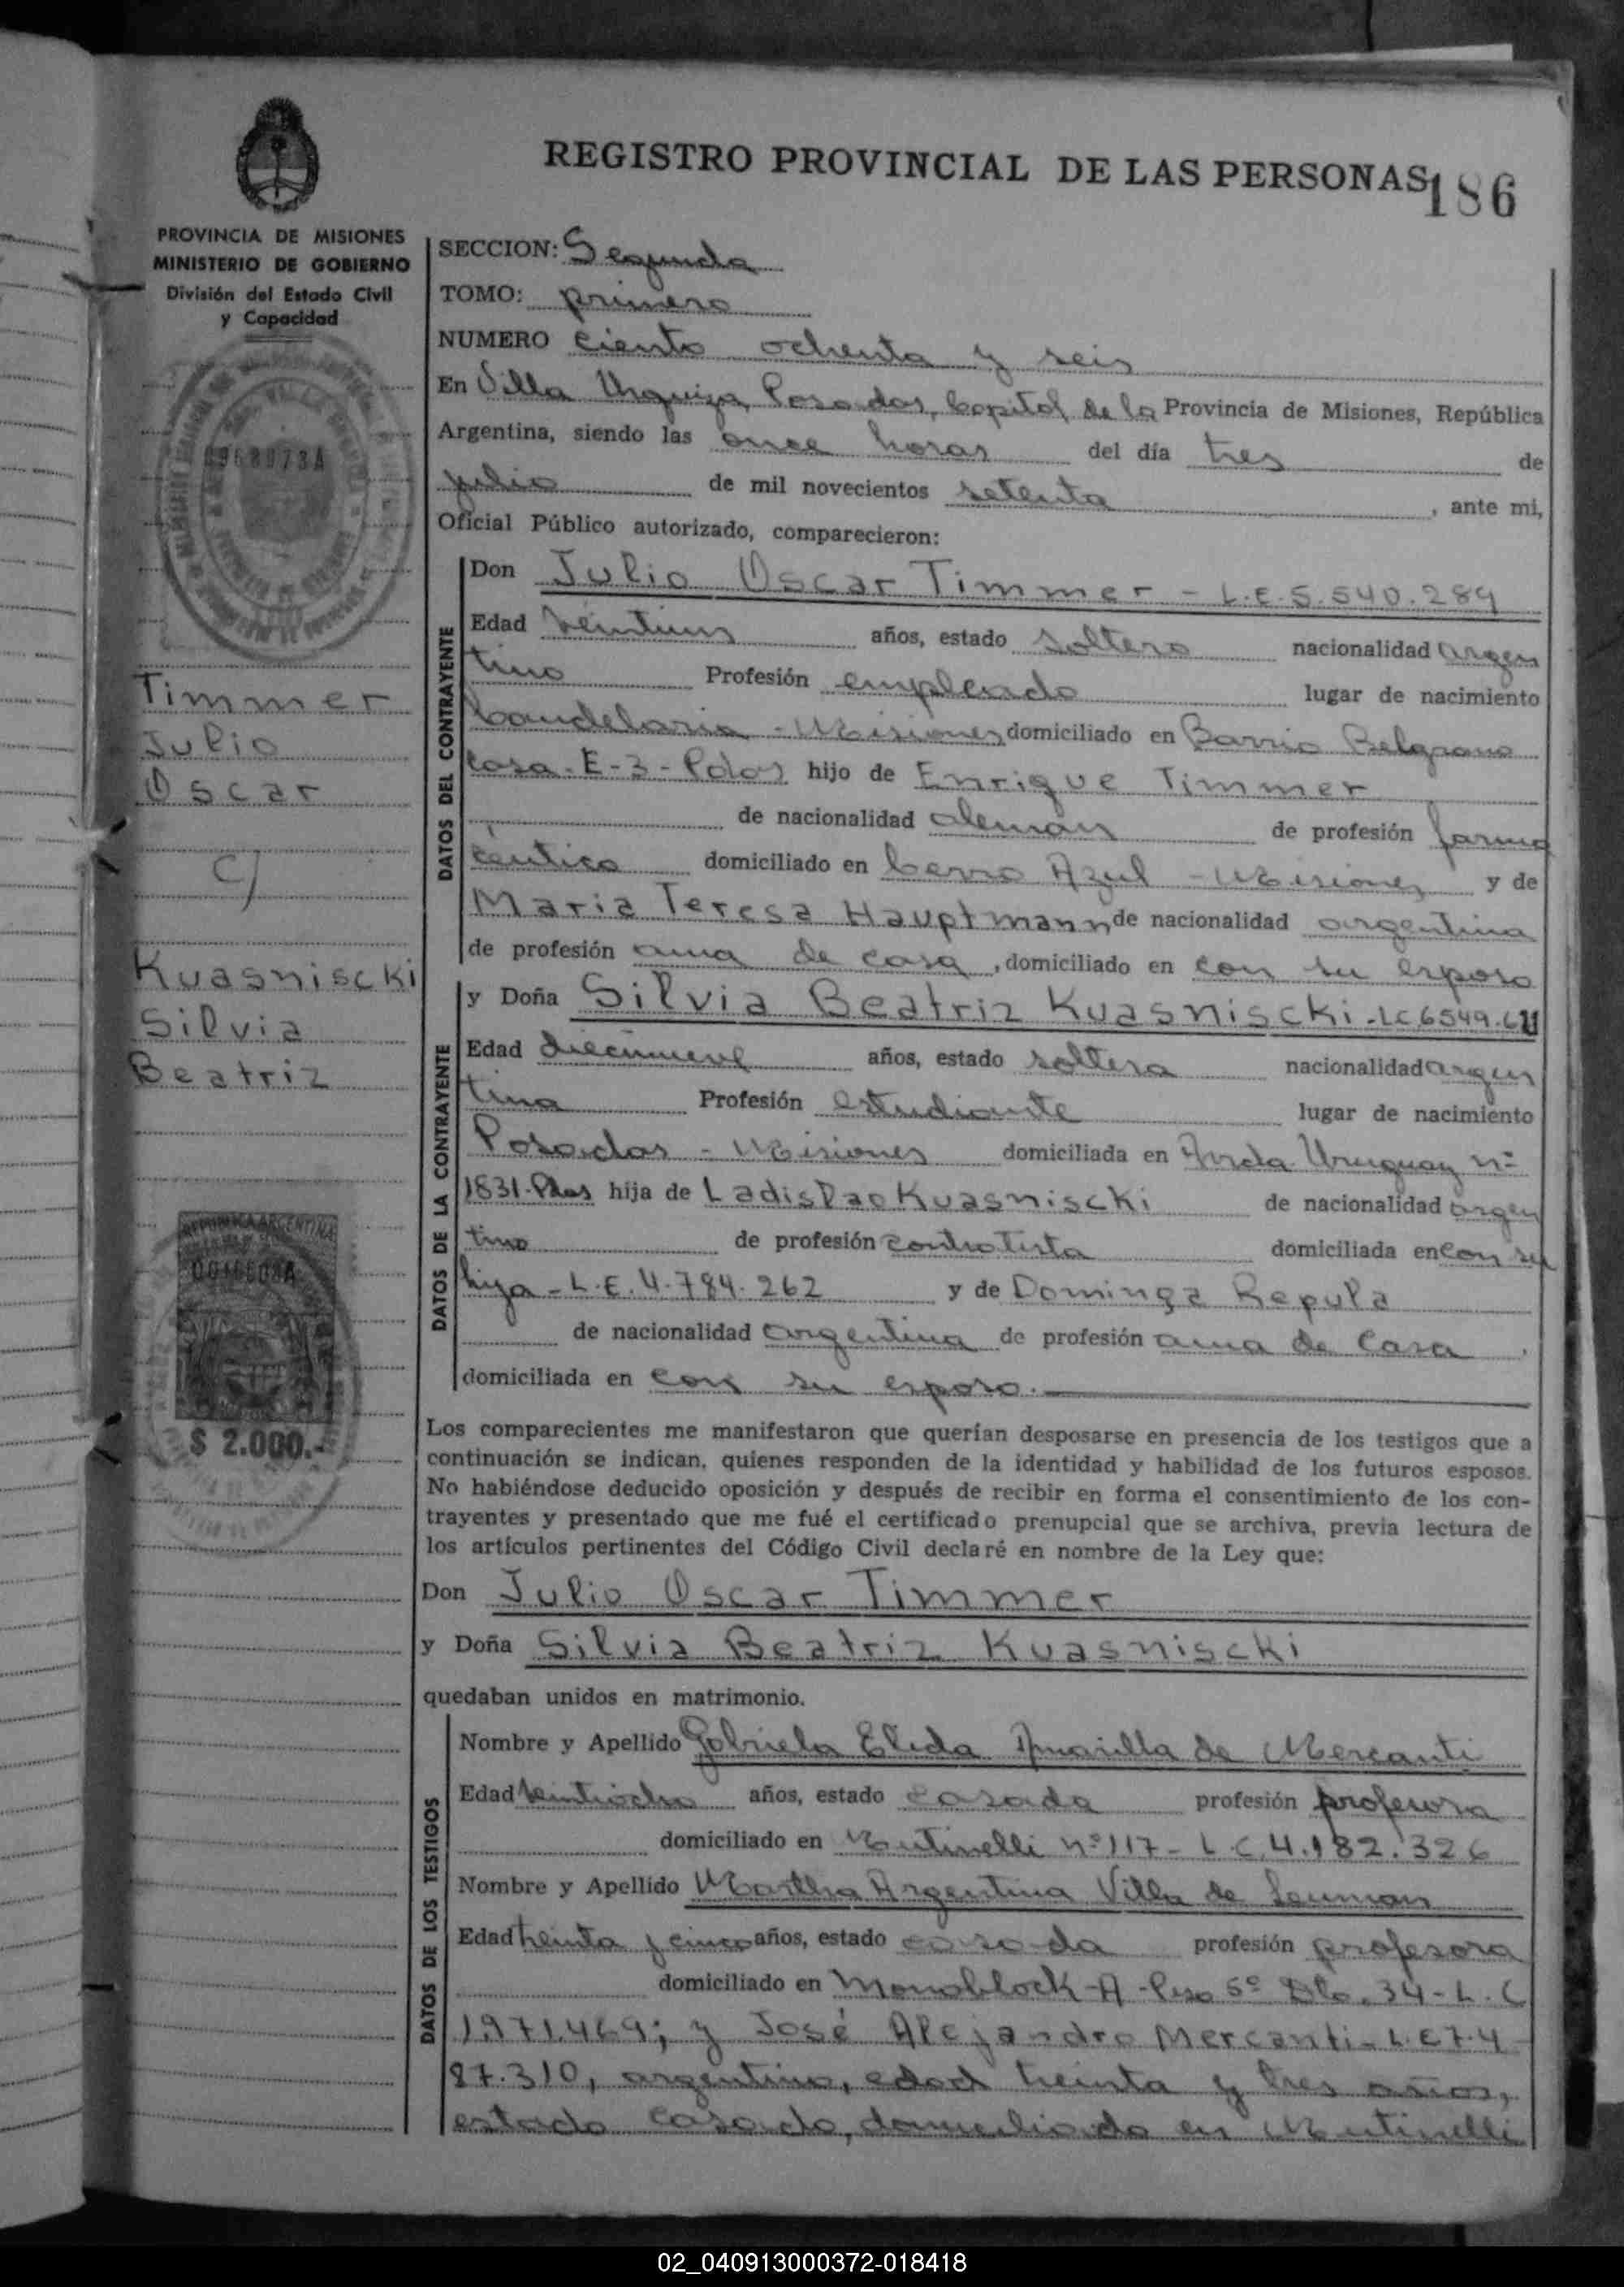 REGISTRO PROVINCIAL DE LAS PERSONAS
186
PROVINCIA DE MISIONES
MINISTERIO DE GOBIERNO
División del Estado Civil
y Capacidad
SECCION: Segunda
TOMO: primero
NUMERO ciento ochenta y seis
En Villa Urquiza, Posadas, Capital de la Provincia de Misiones, República
Argentina, siendo las once horas del día tres de
julio de mil novecientos setenta, ante mi,
Oficial Público autorizado, comparecieron:
Timmer
Julio
Oscar
C/
Kuasniscki
Silvia
Beatriz
$ 2.000.-
REPUBLICA ARGENTINA
DATOS DEL CONTRAYENTE
Don Julio Oscar Timmer - L.E. 5.540.289
Edad veintiun años, estado soltero nacionalidad argen
tino Profesión empleado lugar de nacimiento
Candelaria - Misiones domiciliado en Barrio Belgrano
Casa - E-3 - Pdas hijo de Enrique Timmer
de nacionalidad alemán de profesión farma
céutico domiciliado en Cerro Azul - Misiones y de
Maria Teresa Hauptmann de nacionalidad argentina
de profesión ama de casa, domiciliado en con su esposo
DATOS DE LA CONTRAYENTE
y Doña Silvia Beatriz Kuasniscki - LC 6549.
Edad diecinueve años, estado soltera nacionalidad argen
tina Profesión estudiante lugar de nacimiento
Posadas - Misiones domiciliada en Avda Uruguay nº
1831 - Pdas hija de Ladislao Kuasniscki de nacionalidad argen
tino de profesión contratista domiciliada en con su
hija - L.E. 4.784.262 y de Dominga Repula
de nacionalidad argentina de profesión ama de casa
domiciliada en con su esposo.
Los comparecientes me manifestaron que querían desposarse en presencia de los testigos que a
continuación se indican, quienes responden de la identidad y habilidad de los futuros esposos.
No habiéndose deducido oposición y después de recibir en forma el consentimiento de los con-
trayentes y presentado que me fué el certificado prenupcial que se archiva, previa lectura de
los artículos pertinentes del Código Civil declaré en nombre de la Ley que:
Don Julio Oscar Timmer
y Doña Silvia Beatriz Kuasniscki
quedaban unidos en matrimonio.
DATOS DE LOS TESTIGOS
Nombre y Apellido Gabriela Elida Amarilla de Mercanti
Edad veintiocho años, estado casada profesión profesora
domiciliado en Mutinelli nº 117 - L.C. 4.182.326
Nombre y Apellido Martha Argentina Villa de Leuman
Edad treinta y cinco años, estado casada profesión profesora
domiciliado en Monoblock - A - Piso 5º Dto. 34 - L.C
1.971.469; y José Alejandro Mercanti - L.E 7.4
87.310, argentino, edad treinta y tres años,
estado casado, domiciliado en Mutinelli
02_040913000372-018418